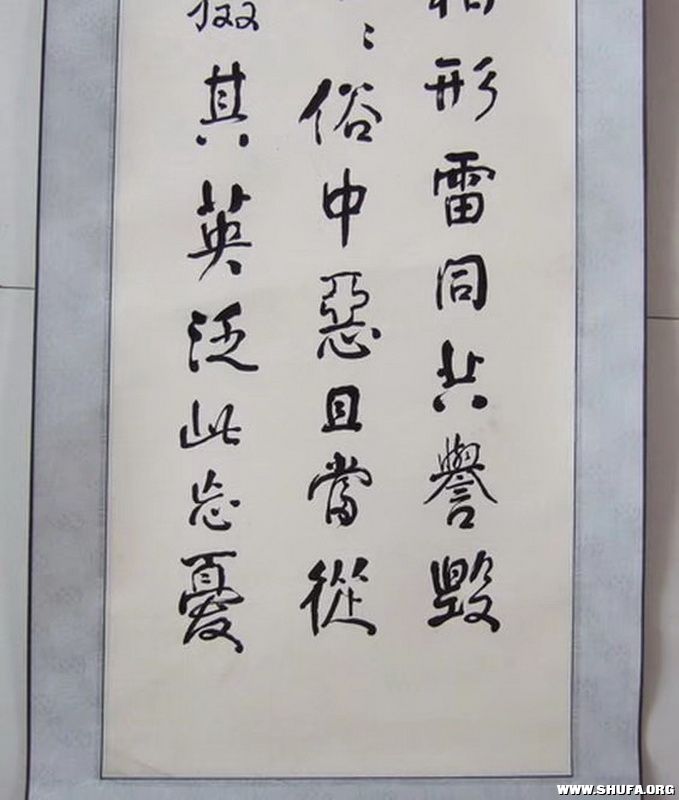 相形雷同共譽毀
〻俗中惡且當從
掇其英泛此忘憂
WWW.SHUFA.ORG